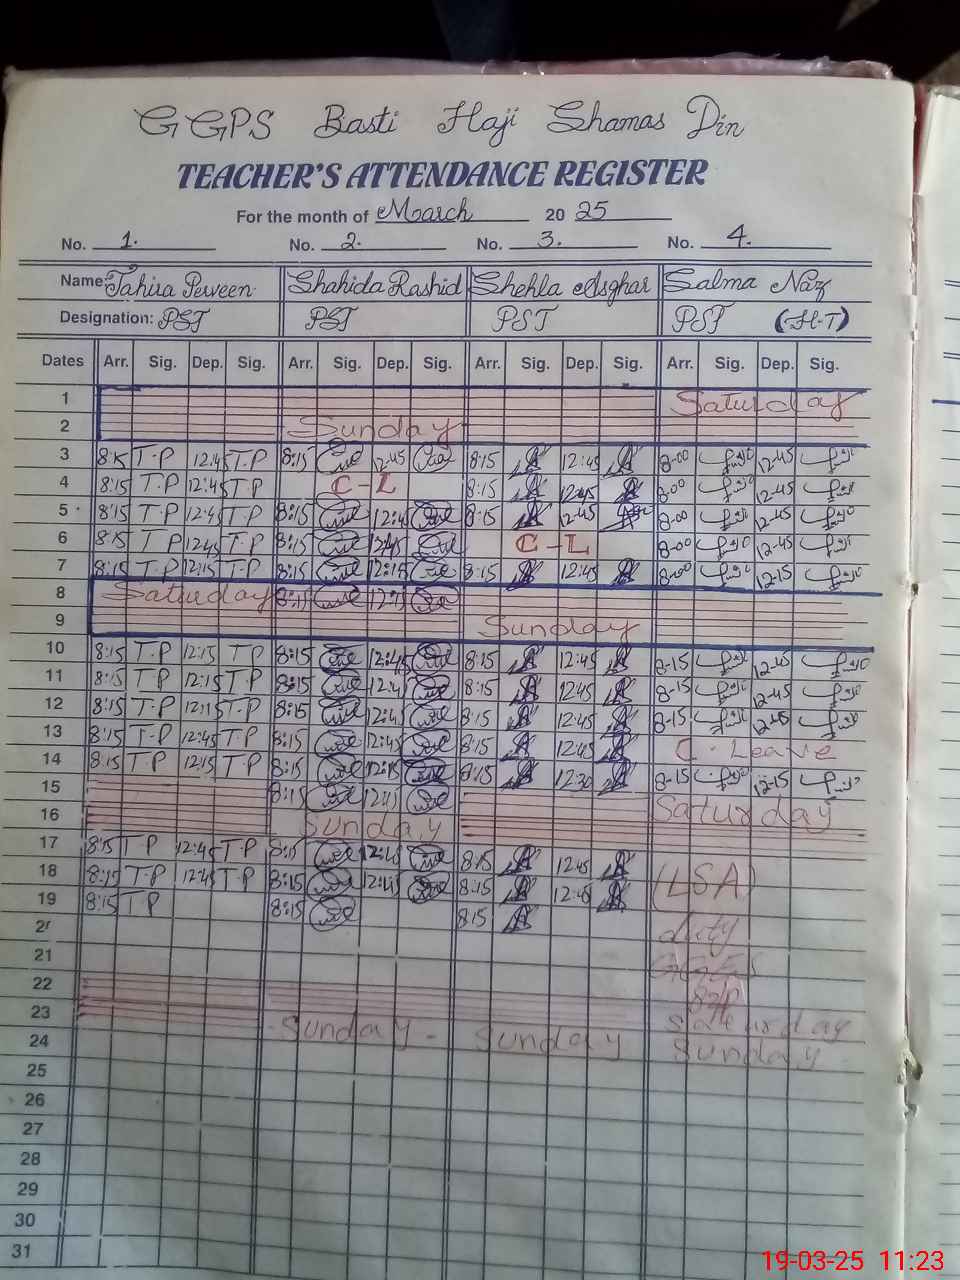 GGPS Basti Haji Shamas Din
TEACHER'S ATTENDANCE REGISTER
For the month of March 20 25
No. 1. No. 2. No. 3. No. 4.
Name: Tahira Perveen Shahida Rashid Shehla Asghar Salma Naz
Designation: PST PST PST PST (H-T)
Dates Arr. Sig. Dep. Sig. Arr. Sig. Dep. Sig. Arr. Sig. Dep. Sig. Arr. Sig. Dep. Sig.
1 Saturday
2 Sunday
3 8:15 T-P 12:45 T-P 8:15 12-45 8:15 12:45 8-00 12-45
4 8:15 T-P 12:45 T-P C-L 8:15 12:45 8-00 12-45
5 8:15 T-P 12:45 T-P 8:15 12:4 8:15 12-45 8-00 12-45
6 8:15 T P 12:45 T-P 8:15 12:45 C-L 8-00 12-45
7 8:15 T-P 12:15 T-P 8:15 12:15 8:15 12:45 8-00 12-15
8 Saturday 8:15 12:15
9 Sunday
10 8:15 T-P 12:15 T-P 8:15 12:45 8:15 12:45 8-15 12-45
11 8:15 T-P 12:15 T-P 8:15 12:4 8:15 12:45 8-15 12-45
12 8:15 T-P 12:15 T-P 8:15 12:45 8:15 12:45 8-15 12-45
13 8:15 T-P 12:45 T-P 8:15 12:45 8:15 12:45 C-Leave
14 8:15 T-P 12:15 T-P 8:15 12:15 8:15 12:30 8-15 12-15
15 8:15 12:15 Saturday
16 Sunday
17 8:15 T-P 12:45 T-P 8:15 12:45 8:15 12:45
18 8:15 T-P 12:45 T-P 8:15 12:45 8:15 12:45 (LSA)
19 8:15 T-P 8:15 8:15
duty
21
22
23 Sunday - Sunday Saturday
24 Sunday
25
26
27
28
29
30
31
19-03-25 11:23